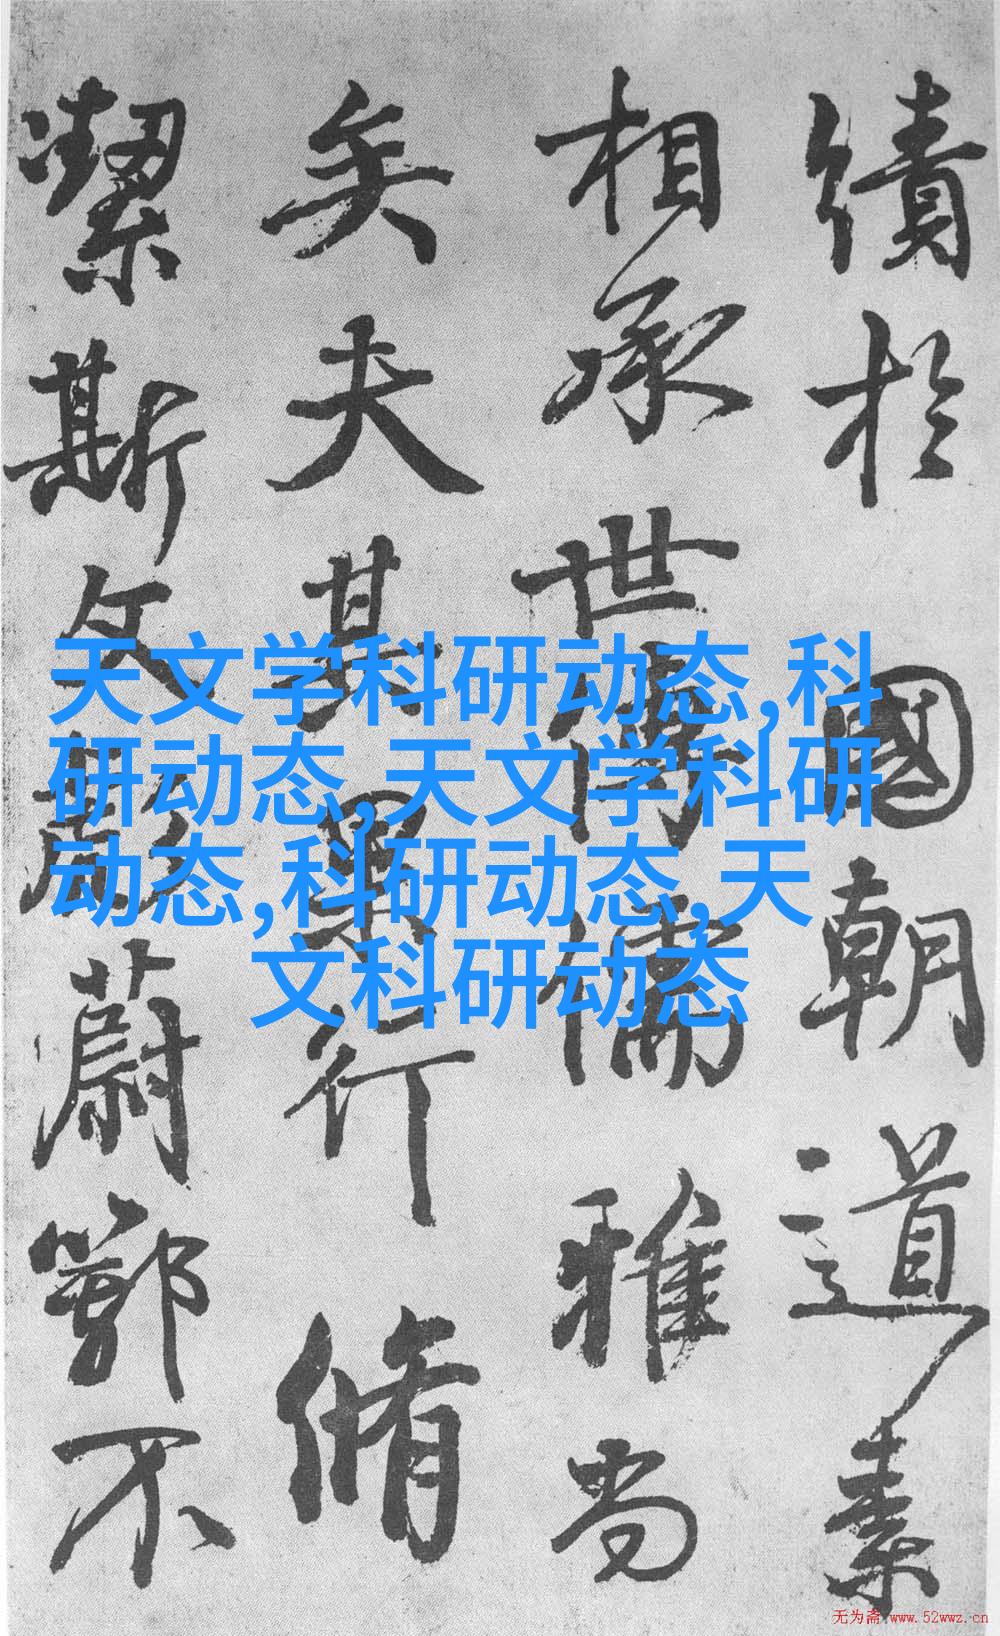 天文学科研动态,科
研动态,天文学科研
动态,科研动态,天
文科研动态
績於國朝道素
相承世傳儒雅尚
矣夫其果行脩
潔斯文彪蔚鄂不
无为斋 www.52wwz.cn